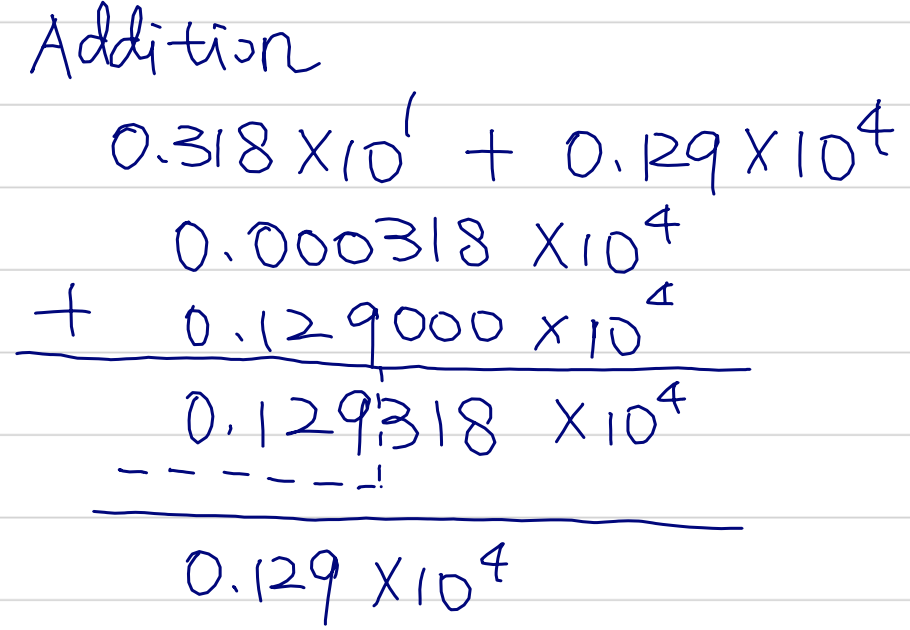 Addition
0.318 × 10¹ + 0.129 × 10⁴
0.000318 × 10⁴
+ 0.129000 × 10⁴
0.129318 × 10⁴
0.129 × 10⁴